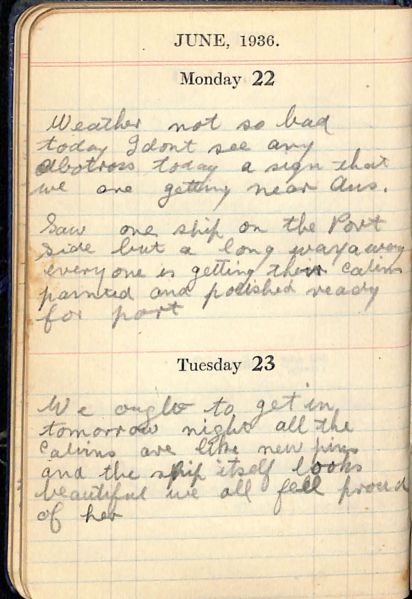 JUNE, 1936.
Monday 22
Weather not so bad
today I dont see any
albotross today a sign that
we are getting near Aus.
Saw one ship on the Port
side but a long way away
everyone is getting their cabins
painted and polished ready
for port
Tuesday 23
We ought to get in
tomorrow night all the
cabins are like new pins
and the ship itself looks
beautiful we all fell proud
of her